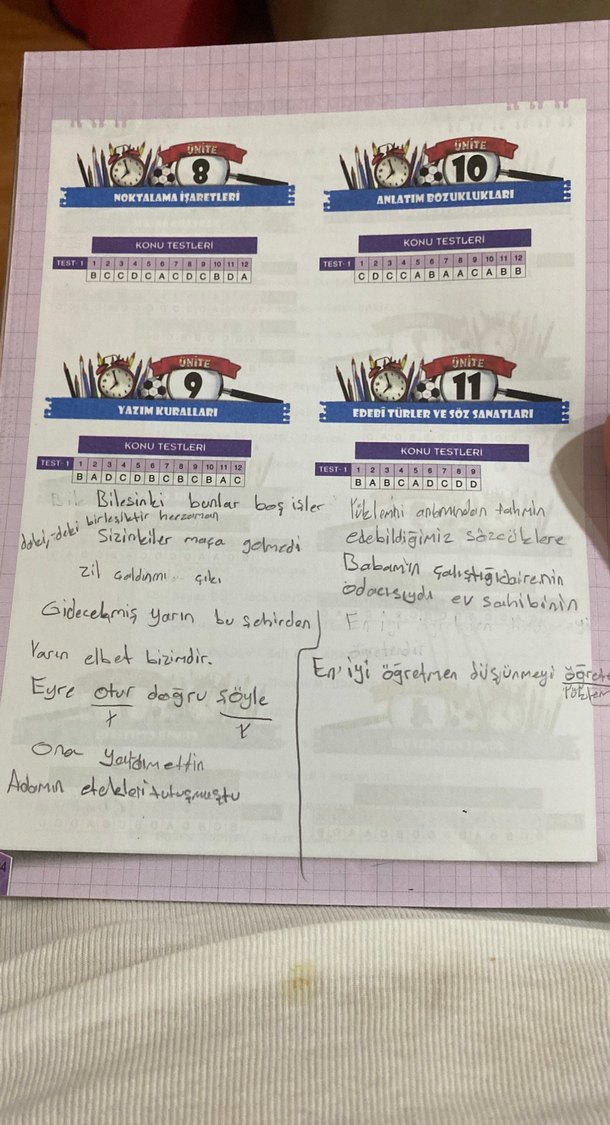 ÜNİTE
8
NOKTALAMA İŞARETLERİ
KONU TESTLERİ
TEST- 1 1 2 3 4 5 6 7 8 9 10 11 12
B C C D C A C D C B D A
ÜNİTE
9
YAZIM KURALLARI
KONU TESTLERİ
TEST- 1 1 2 3 4 5 6 7 8 9 10 11 12
B A D C D B C B C B A C
Bile Bilesinki bunlar boş işler
-deki birleşiktir herzaman
Sizinkiler maça gelmedi
zil çaldımı çık
Gidecekmiş yarın bu şehirden
Yarın elbet bizimdir.
Eyre otur doğru söyle
Ona yardımettin
Adamın etekleri tutuşmuştu
ÜNİTE
10
ANLATIM BOZUKLUKLARI
KONU TESTLERİ
TEST- 1 1 2 3 4 5 6 7 8 9 10 11 12
C D C C A B A A C A B B
ÜNİTE
11
EDEBİ TÜRLER VE SÖZ SANATLARI
KONU TESTLERİ
TEST- 1 1 2 3 4 5 6 7 8 9
B A B C A D C D D
Yüklemini anlamından tahmin
edebildiğimiz sözcüklere
Babamın çalıştığı dairenin
odacısıydı ev sahibinin
En iyi
En iyi öğretmen düşünmeyi